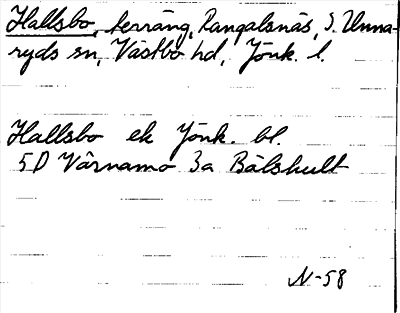 Hallsbo, terräng, Rangalsnäs, S. Unna-
ryds sn, Västbo hd, Jönk. l.
Hallsbo ek Jönk. bl.
5D Värnamo 3a Bälshult
N-58